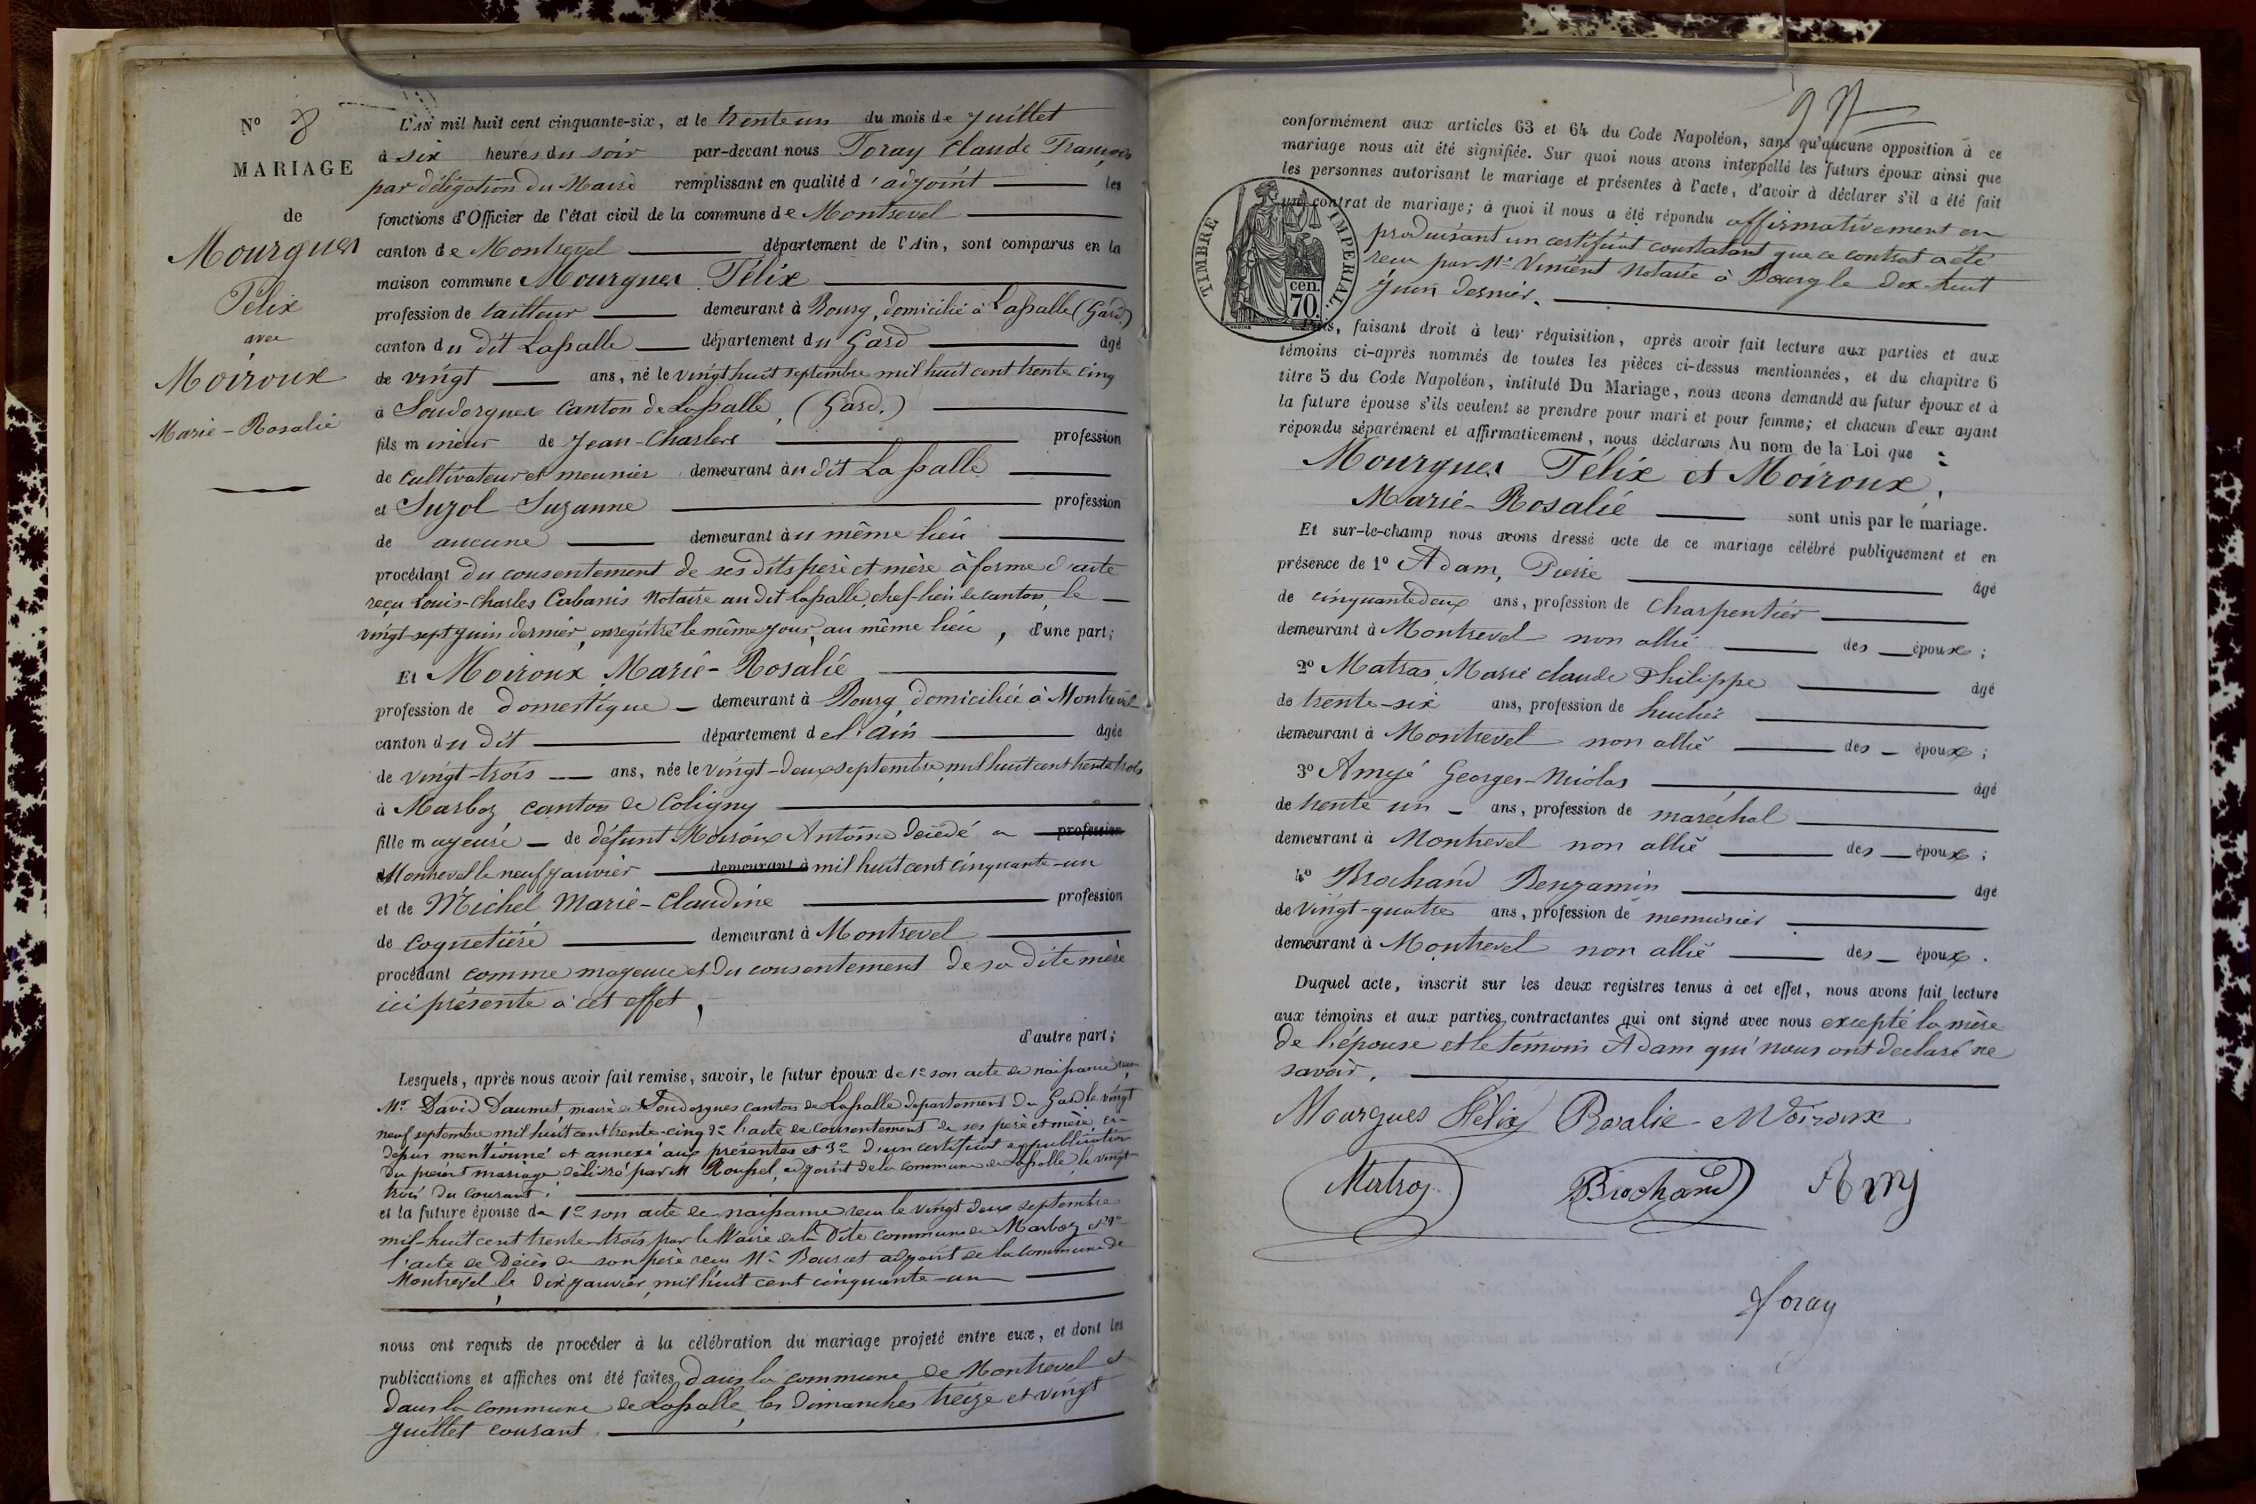 Nº 8
MARIAGE
de
Mourgues
Félix
avec
Moiroux
Marie-Rosalie
L'AN mil huit cent cinquante-six, et le trente un du mois de Juillet
à six heures du soir par-devant nous Foray Claude François
par délégation du Maire remplissant en qualité d'adjoint les
fonctions d'Officier de l'état civil de la commune de Montrevel
canton de Montrevel département de l'Ain, sont comparus en la
maison commune Mourgues Félix
profession de tailleur demeurant à Bourg, domicilié à Lassalle (Gard)
canton du dit Lassalle département du Gard âgé
de vingt ans, né le vingt huit septembre mil huit cent trente cinq
à Soudorgues canton de Lassalle, (Gard.)
fils mineur de Jean-Charles profession
de cultivateur et meunier demeurant au dit Lassalle
et Suzol Suzanne profession
de aucune demeurant au même lieu
procédant du consentement de ses dits père et mère à forme d'acte
reçu Louis-Charles Cabanis Notaire au dit Lassalle, chef-lieu de canton, le
vingt-sept Juin dernier, enregistré le même jour, au même lieu, d'une part;
Et Moiroux Marie-Rosalie
profession de domestique demeurant à Bourg, domiciliée à Montrevel
canton du dit département de l'Ain âgée
de vingt-trois ans, née le vingt-deux septembre mil huit cent trente trois
à Marboz, canton de Coligny
fille majeure de défunt Moiroux Antoine décédé à profession
Montrevel le neuf janvier demeurant à mil huit cent cinquante-un
et de Michel Marie-Claudine profession
de coquetière demeurant à Montrevel
procédant comme majeure et du consentement de sa dite mère
ici présente à cet effet,
d'autre part;
Lesquels, après nous avoir fait remise, savoir, le futur époux de 1º son acte de naissance reçu
Mr David Daumet, maire de Soudorgues canton de Lassalle département du Gard le vingt
neuf septembre mil huit cent trente-cinq 2º l'acte de consentement de ses père et mère, ci-
dessus mentionné et annexé aux présentes et 3º d'un certificat de publication
du présent mariage, délivré par M Roussel, adjoint de la commune de Lassalle, le vingt
trois du courant.
et la future épouse de 1º son acte de naissance reçu le vingt deux septembre
mil-huit cent trente-trois par le Maire de la dite commune de Marboz et 2º
l'acte de décès de son père reçu Mr adjoint de la commune de
Montrevel, le dix janvier, mil huit cent cinquante-un
nous ont requis de procéder à la célébration du mariage projeté entre eux, et dont les
publications et affiches ont été faites dans la commune de Montrevel et
dans la commune de Lassalle, les dimanches treize et vingt
Juillet courant.
conformément aux articles 63 et 64 du Code Napoléon, sans qu'aucune opposition à ce
mariage nous ait été signifiée. Sur quoi nous avons interpellé les futurs époux ainsi que
les personnes autorisant le mariage et présentes à l'acte, d'avoir à déclarer s'il a été fait
un contrat de mariage; à quoi il nous a été répondu affirmativement en
produisant un certificat constatant que ce contrat a été
reçu par Mr Vincent Notaire à Bourg le dix-huit
Juin dernier.
TIMBRE IMPERIAL.
cen.
70.
Puis, faisant droit à leur réquisition, après avoir fait lecture aux parties et aux
témoins ci-après nommés de toutes les pièces ci-dessus mentionnées, et du chapitre 6
titre 5 du Code Napoléon, intitulé Du Mariage, nous avons demandé au futur époux et à
la future épouse s'ils veulent se prendre pour mari et pour femme; et chacun d'eux ayant
répondu séparément et affirmativement, nous déclarons Au nom de la Loi que :
Mourgues Félix et Moiroux,
Marie-Rosalie sont unis par le mariage.
Et sur-le-champ nous avons dressé acte de ce mariage célébré publiquement et en
présence de 1º Adam, Pierre âgé
de cinquante deux ans, profession de charpentier
demeurant à Montrevel non allié des époux;
2º Matras, Marie Claude Philippe âgé
de trente-six ans, profession de huissier
demeurant à Montrevel non allié des époux;
3º Georges-Nicolas âgé
de trente un ans, profession de maréchal
demeurant à Montrevel non allié des époux;
4º Brochand Benjamin âgé
de vingt-quatre ans, profession de menuisier
demeurant à Montrevel non allié des époux.
Duquel acte, inscrit sur les deux registres tenus à cet effet, nous avons fait lecture
aux témoins et aux parties contractantes qui ont signé avec nous excepté la mère
de l'épouse et le témoin Adam qui nous ont déclaré ne
savoir.
Mourgues Félix Rosalie Moiroux
Matras Brochand
Foray